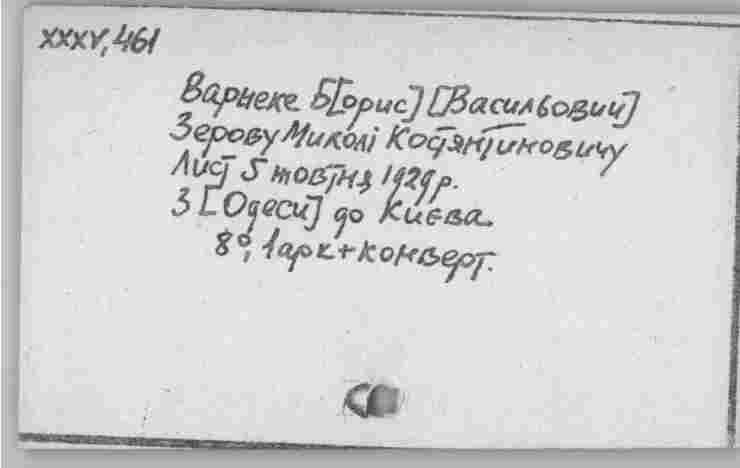 XXXV, 461
Варнеке Б[орис] [Васильович]
Зерову Миколі Костянтиновичу
Лист 5 жовтня 1929 р.
З [Одеси] до Києва.
8°, 1 арк + конверт.